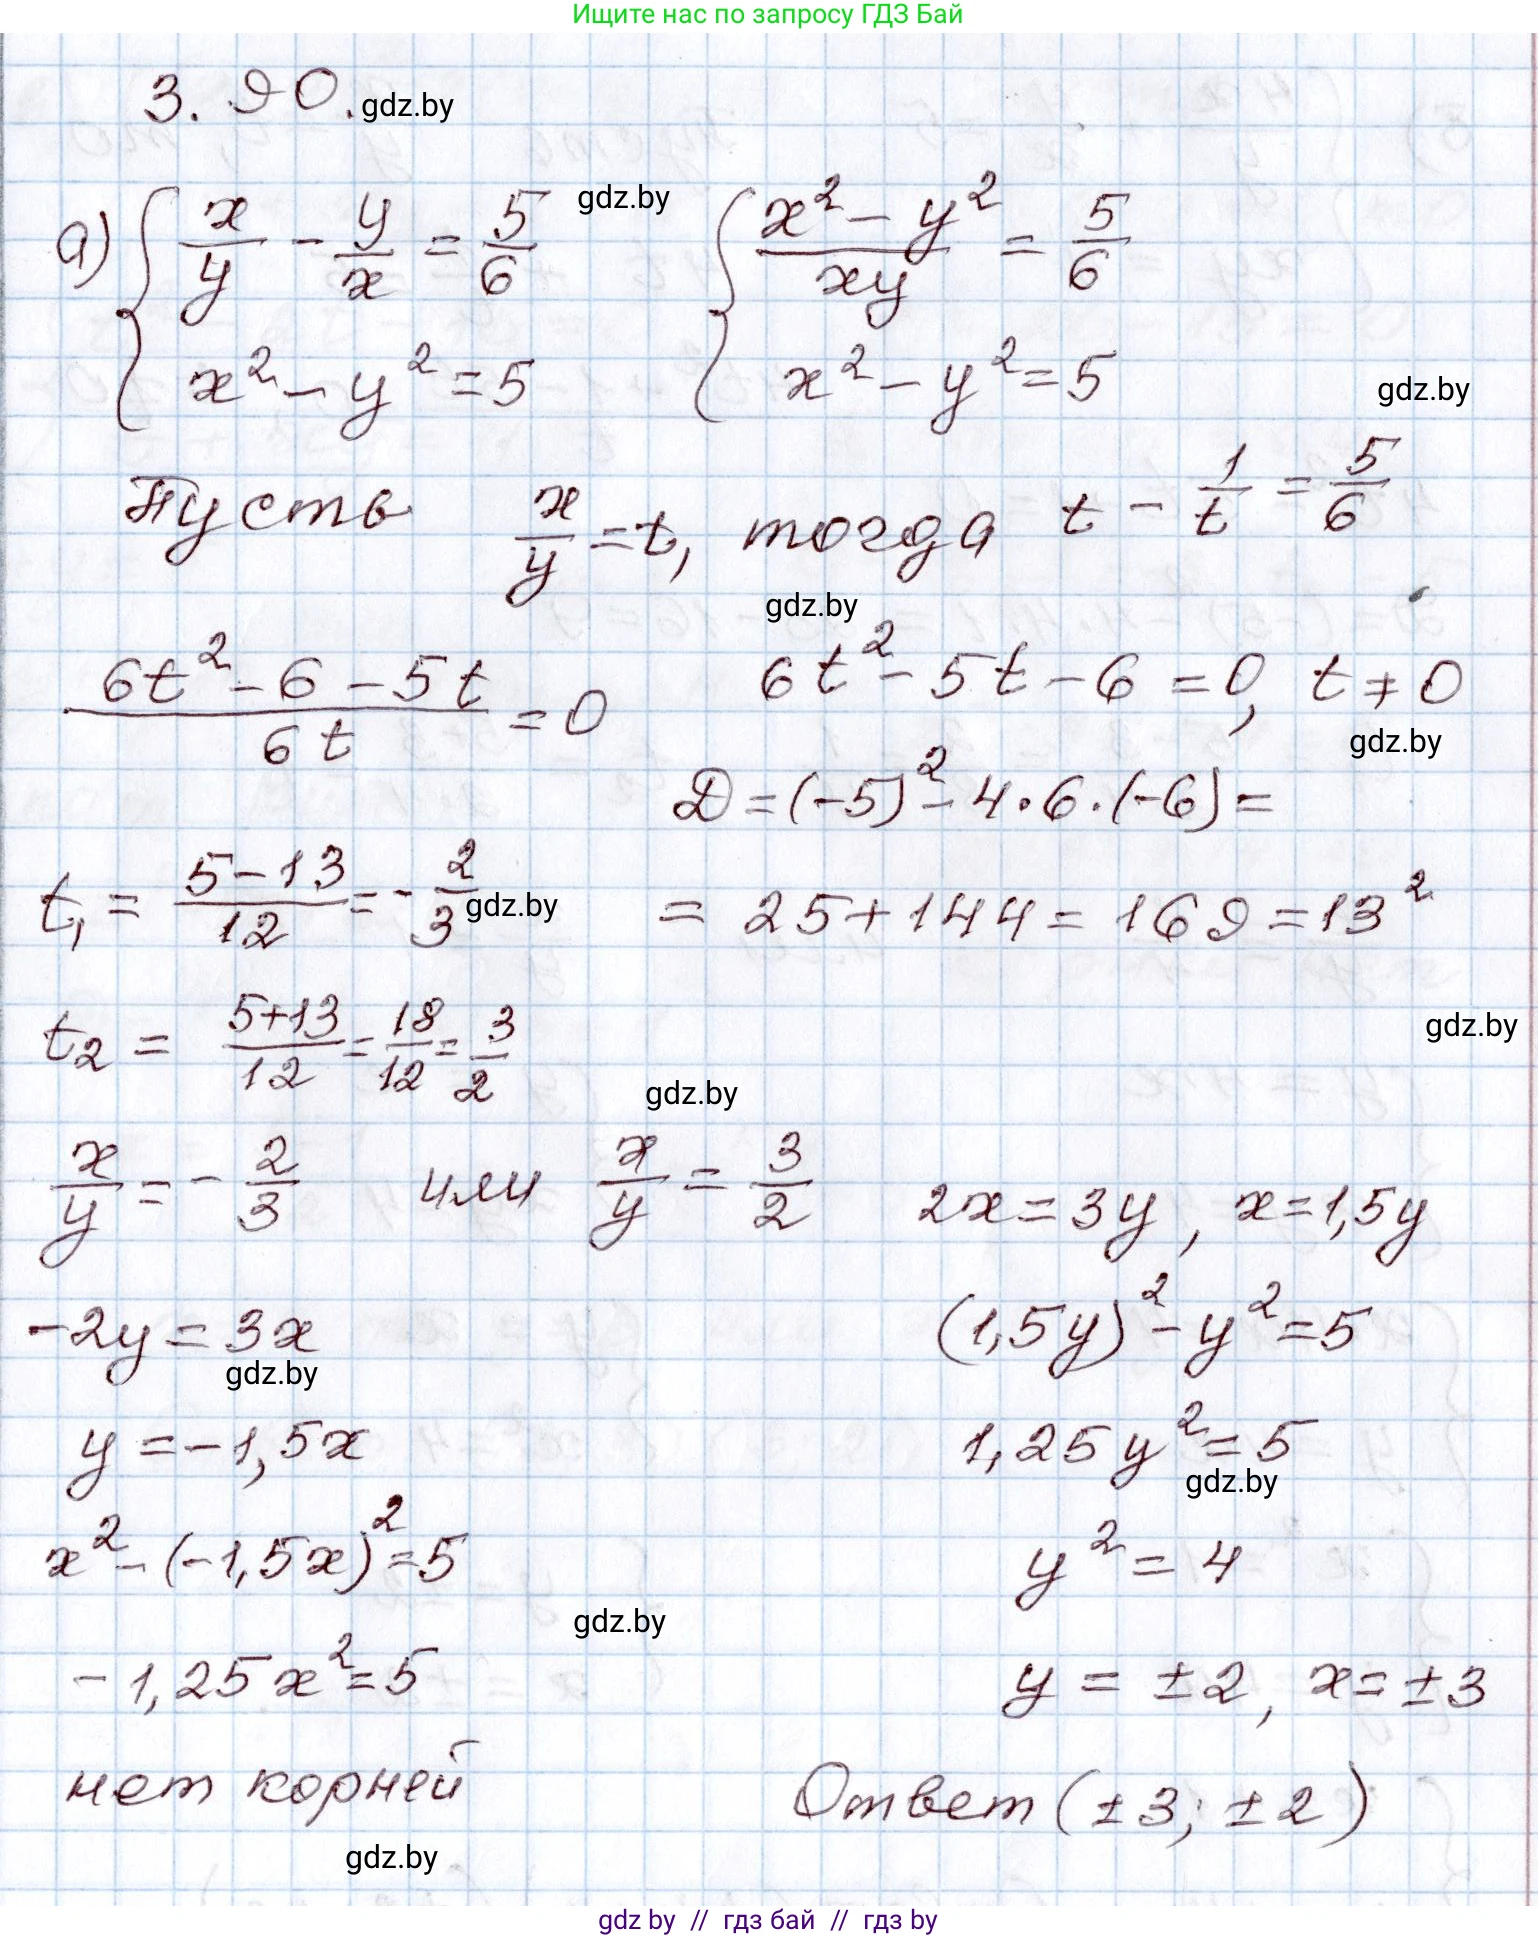 Ищите нас по запросу ГДЗ Бай
3.90. gdz.by
а) { x/y - y/x = 5/6 gdz.by { (x² - y²)/(xy) = 5/6
x² - y² = 5 x² - y² = 5 gdz.by
Пусть x/y = t, тогда t - 1/t = 5/6
gdz.by
(6t² - 6 - 5t)/(6t) = 0 6t² - 5t - 6 = 0, t ≠ 0
gdz.by
D = (-5)² - 4·6·(-6) =
t₁ = (5-13)/12 = -2/3 gdz.by = 25 + 144 = 169 = 13²
gdz.by
t₂ = (5+13)/12 = 18/12 = 3/2
gdz.by
x/y = -2/3 или x/y = 3/2 2x = 3y, x = 1,5y
-2y = 3x (1,5y)² - y² = 5
gdz.by
y = -1,5x 1,25y² = 5
gdz.by
x² - (-1,5x)² = 5 y² = 4
gdz.by
-1,25x² = 5 y = ±2, x = ±3
нет корней Ответ (±3; ±2)
gdz.by
gdz by // гдз бай // гдз by